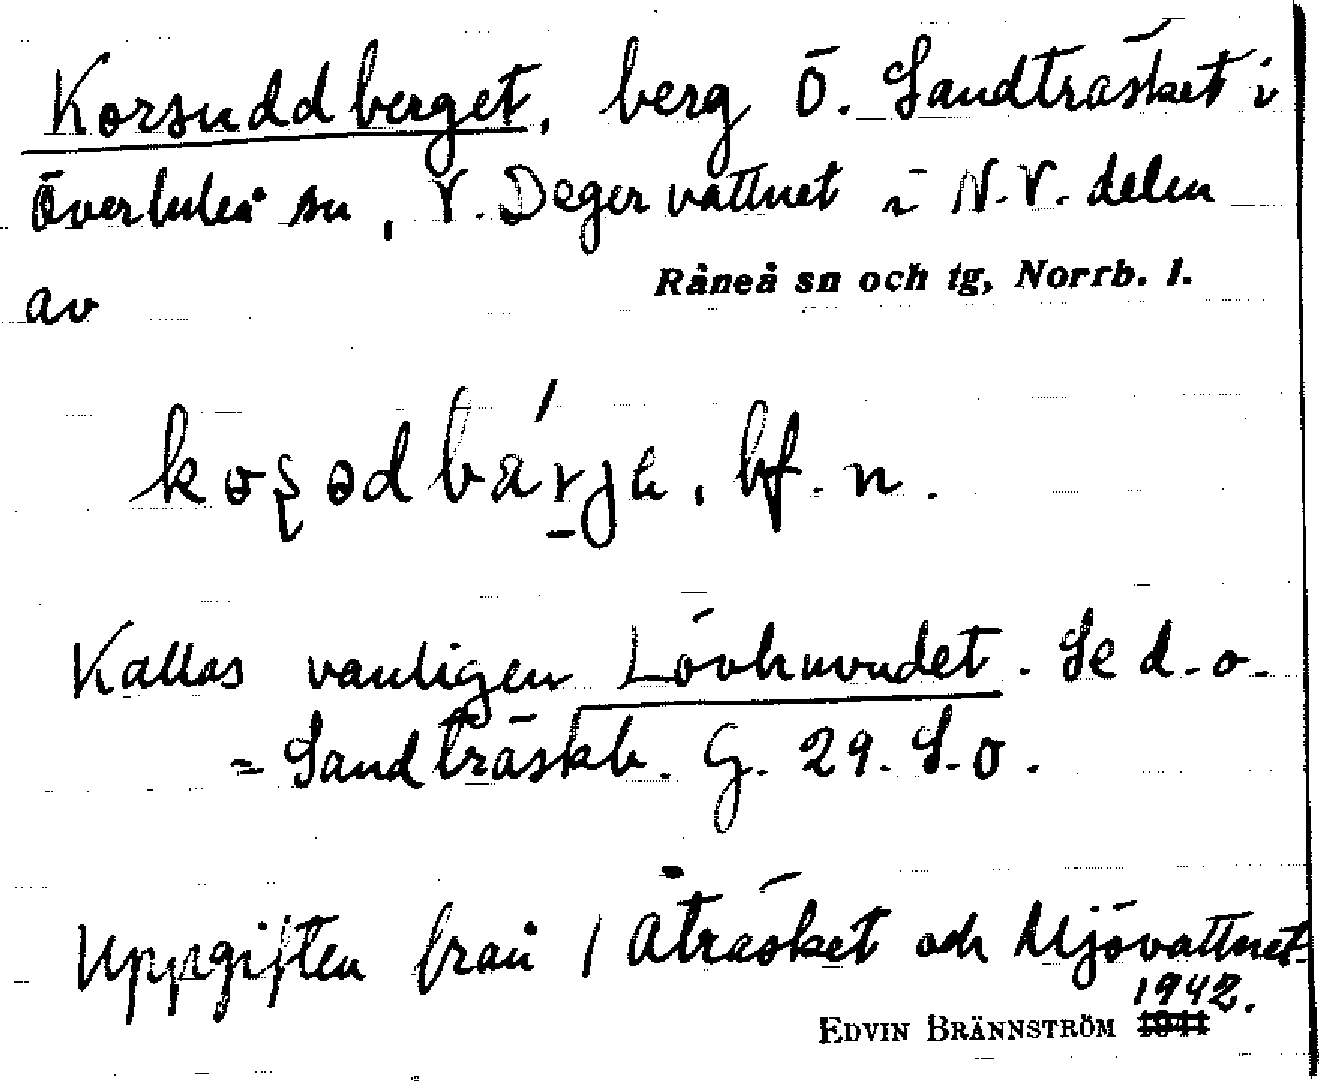 Korsuddberget, berg Ö. Sandträsket i
Överluleå sn, V. Degervattnet i N.V. delen
av Råneå sn och tg, Norrb. l.
bf. n.
Kallas vanligen Lövhuvudet. Se d.o.
= Sandträskb. G. 29. S.o.
Uppgiften från Åträsket och Mjövattnet
1942.
EDVIN BRÄNNSTRÖM 1941